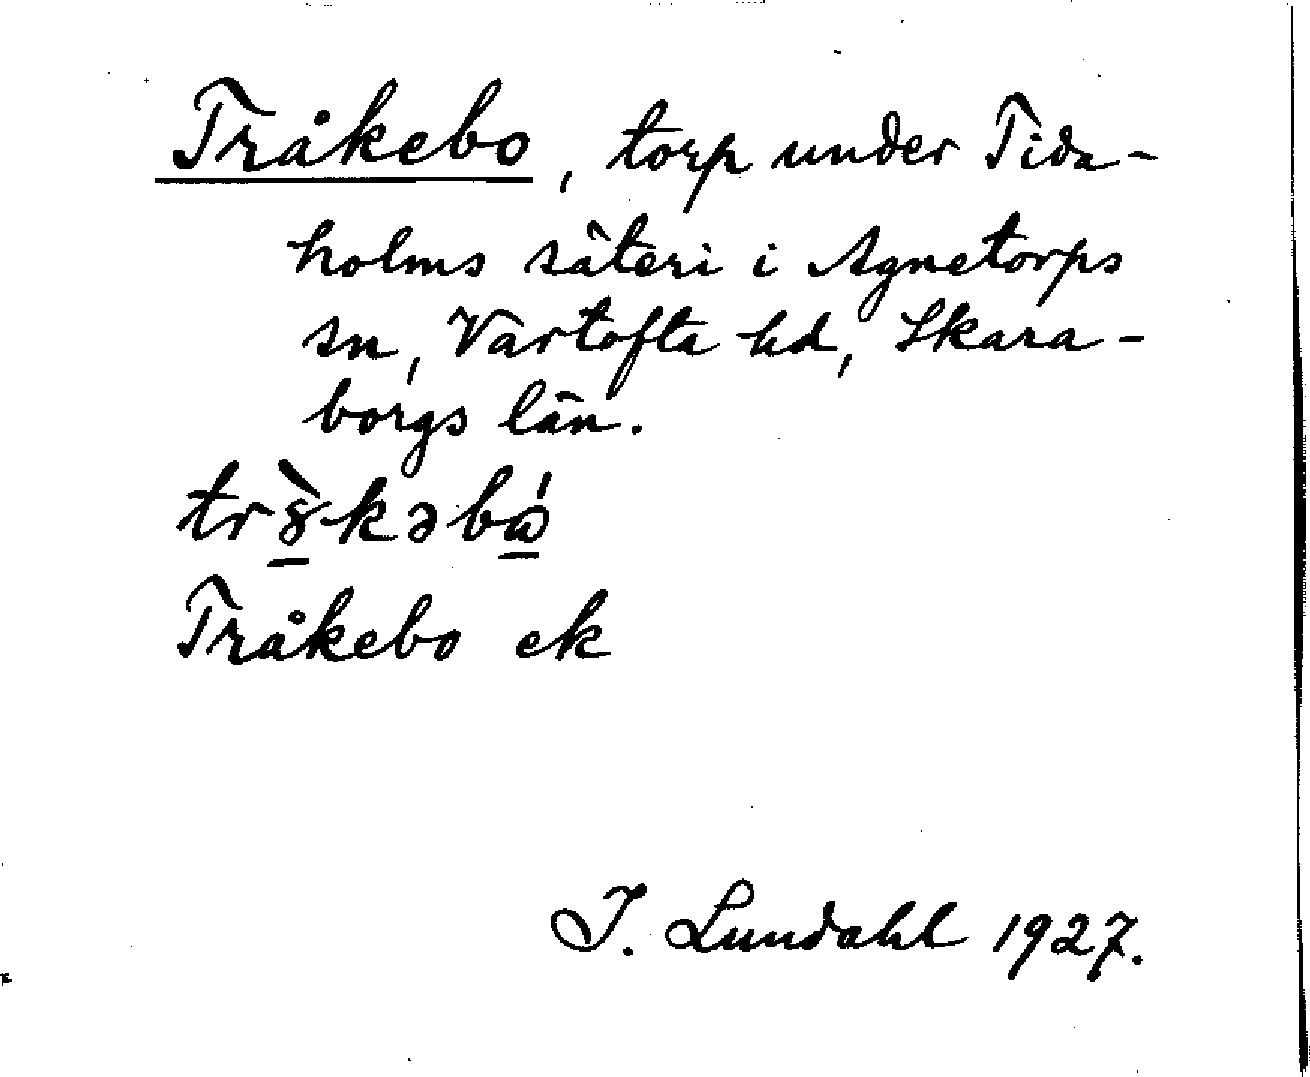 Tråkebo, torp under Tida-
holms säteri i Agnetorps
sn, Vartofta hd, Skara-
borgs län.
Tråkebo ek
I. Lundahl 1927.